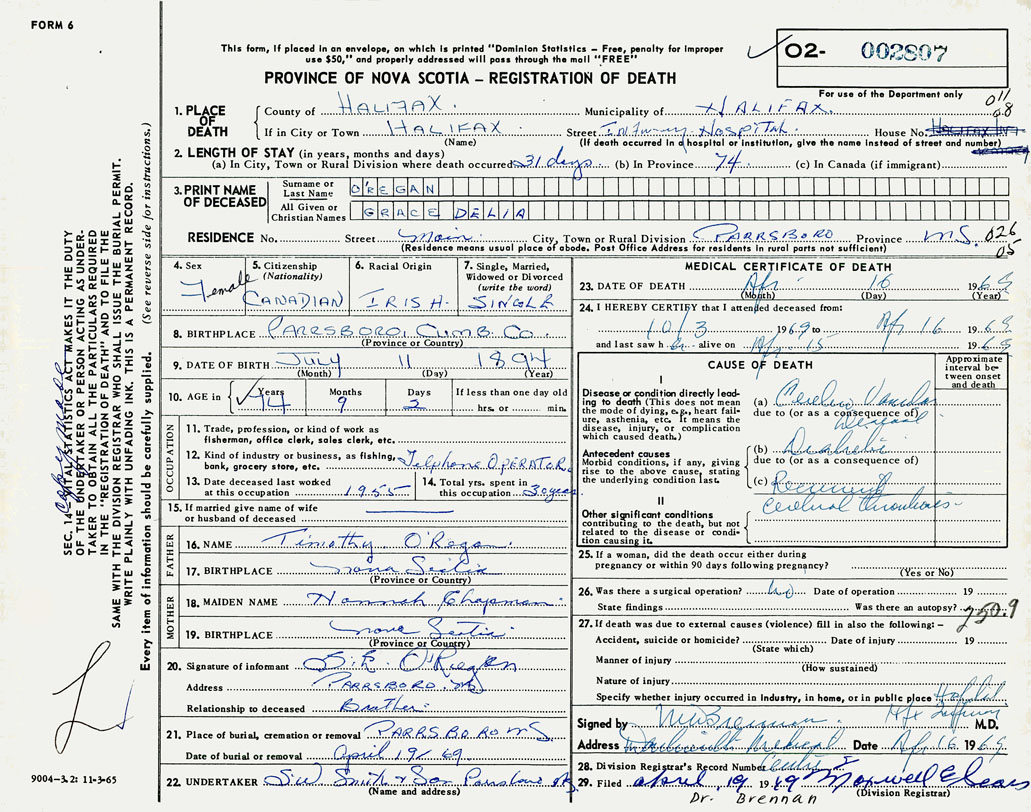 FORM 6
This form, if placed in an envelope, on which is printed "Dominion Statistics – Free, penalty for improper
use $50," and properly addressed will pass through the mail "FREE"
PROVINCE OF NOVA SCOTIA – REGISTRATION OF DEATH
02- 002807
For use of the Department only
011
08
1. PLACE OF DEATH { County of HALIFAX. Municipality of HALIFAX.
If in City or Town HALIFAX (Name) Street Infirmary Hospital. House No.
(If death occurred in a hospital or institution, give the name instead of street and number)
2. LENGTH OF STAY (in years, months and days)
(a) In City, Town or Rural Division where death occurred 31 days (b) In Province 74. (c) In Canada (if immigrant)
3. PRINT NAME OF DECEASED { Surname or Last Name O'REGAN
All Given or Christian Names GRACE DELIA
RESIDENCE No. Street Main. City, Town or Rural Division PARRSBORO Province N.S. 026
05
(Residence means usual place of abode. Post Office Address for residents in rural parts not sufficient)
4. Sex Female
5. Citizenship (Nationality) CANADIAN
6. Racial Origin IRISH.
7. Single, Married, Widowed or Divorced (write the word) SINGLE
8. BIRTHPLACE PARRSBORO. CUMB. CO.
(Province or Country)
9. DATE OF BIRTH July 11 1894
(Month) (Day) (Year)
10. AGE in { Years 74 Months 9 Days 2 If less than one day old hrs. or min.
OCCUPATION
11. Trade, profession, or kind of work as fisherman, office clerk, sales clerk, etc.
12. Kind of industry or business, as fishing, bank, grocery store, etc. Telphone OPERATOR.
13. Date deceased last worked at this occupation 1955
14. Total yrs. spent in this occupation 30 years
15. If married give name of wife or husband of deceased
FATHER
16. NAME Timothy O'Regan.
17. BIRTHPLACE Nova Scotia
(Province or Country)
MOTHER
18. MAIDEN NAME Hannah Chapman.
19. BIRTHPLACE Nova Scotia
(Province or Country)
20. Signature of informant O'Regan
Address PARRSBORO. N.S.
Relationship to deceased Brother.
21. Place of burial, cremation or removal PARRSBORO N.S
Date of burial or removal April 19/ 69
22. UNDERTAKER Smith & Son Parrsboro N.S.
(Name and address)
MEDICAL CERTIFICATE OF DEATH
23. DATE OF DEATH Apr. 16 1969
(Month) (Day) (Year)
24. I HEREBY CERTIFY that I attended deceased from:
10/3 1969 to Apr 16 1969
and last saw her alive on Apr. 15 1969
CAUSE OF DEATH
Approximate interval between onset and death
I
Disease or condition directly leading to death (This does not mean the mode of dying, e.g., heart failure, asthenia, etc. It means the disease, injury, or complication which caused death.)
(a) Cerebro Vascular
due to (or as a consequence of)
Antecedent causes
Morbid conditions, if any, giving rise to the above cause, stating the underlying condition last.
(b) Diabetes
due to (or as a consequence of)
(c) Recurrent
cerebral thrombosis
II
Other significant conditions contributing to the death, but not related to the disease or condition causing it.
25. If a woman, did the death occur either during pregnancy or within 90 days following pregnancy?
(Yes or No)
26. Was there a surgical operation? No Date of operation 19
State findings Was there an autopsy?
250.9
27. If death was due to external causes (violence) fill in also the following: –
Accident, suicide or homicide? Date of injury 19
(State which)
Manner of injury
(How sustained)
Nature of injury
Specify whether injury occurred in industry, in home, or in public place
Signed by Brennan. M.D.
Address Medical Date Apr 16 1969
28. Division Registrar's Record Number
29. Filed April 19 1969 Maxwell
(Division Registrar)
Dr. Brennan
SEC. 14 – VITAL STATISTICS ACT MAKES IT THE DUTY
OF THE UNDERTAKER OR PERSON ACTING AS UNDER-
TAKER TO OBTAIN ALL THE PARTICULARS REQUIRED
IN THE "REGISTRATION OF DEATH" AND TO FILE THE
SAME WITH THE DIVISION REGISTRAR WHO SHALL ISSUE THE BURIAL PERMIT.
WRITE PLAINLY WITH UNFADING INK. THIS IS A PERMANENT RECORD.
Every item of information should be carefully supplied. (See reverse side for instructions.)
9004-3.2: 11-3-65